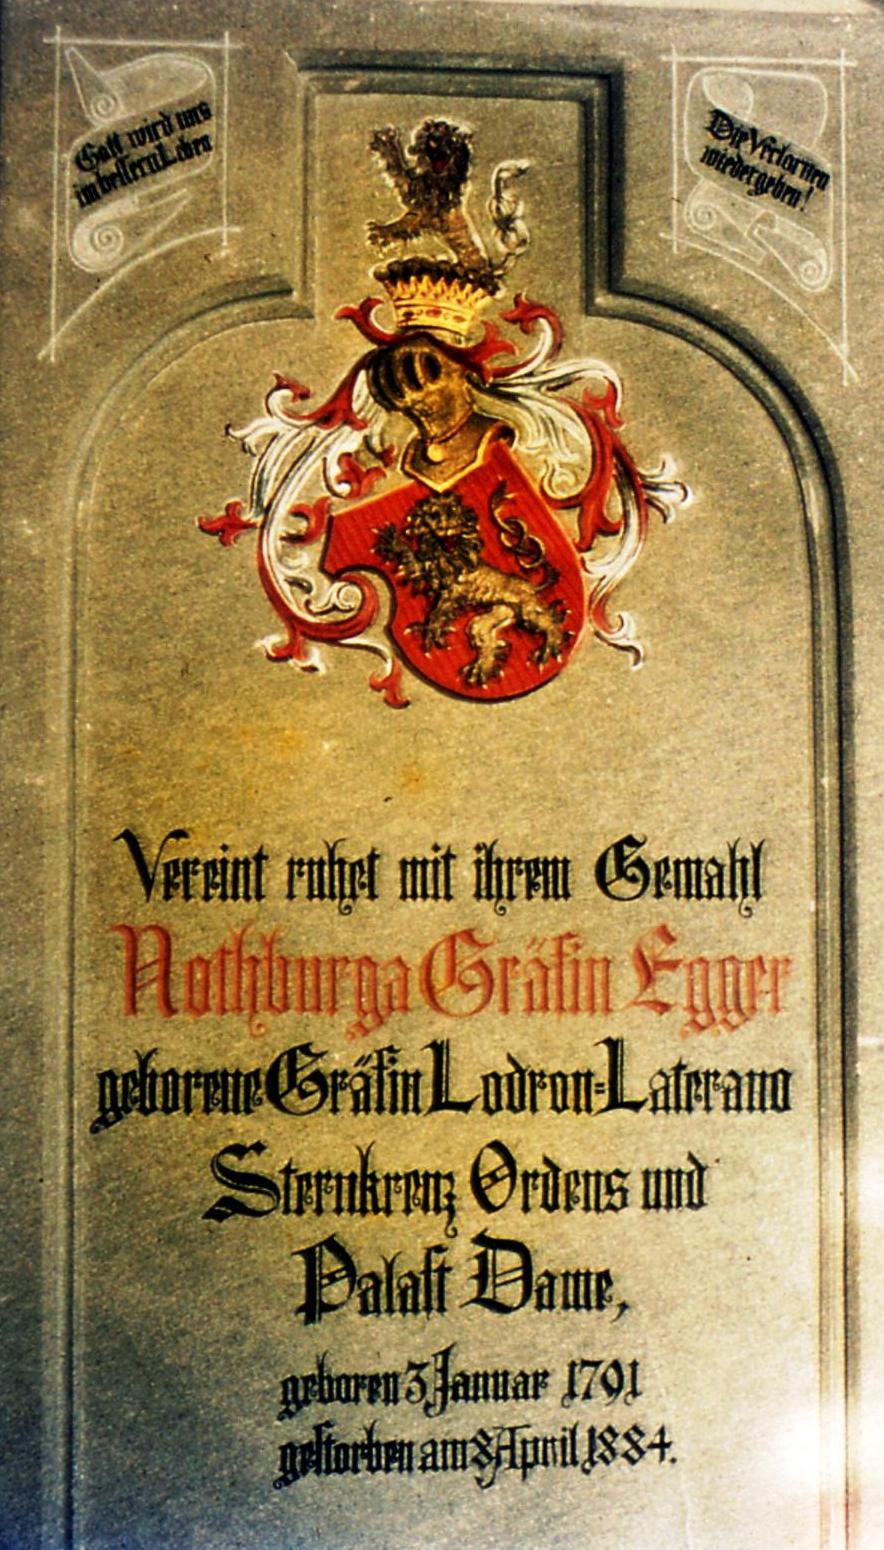 Gott wird uns
im bessern Leben
Die Verlornen
wiedergeben!
Vereint ruhet mit ihrem Gemahl
Nothburga Gräfin Egger
geborene Gräfin Lodron-Laterano
Sternkreuz Ordens und
Palast Dame,
geboren 3 Januar 1791
gestorben am 8 April 1884.